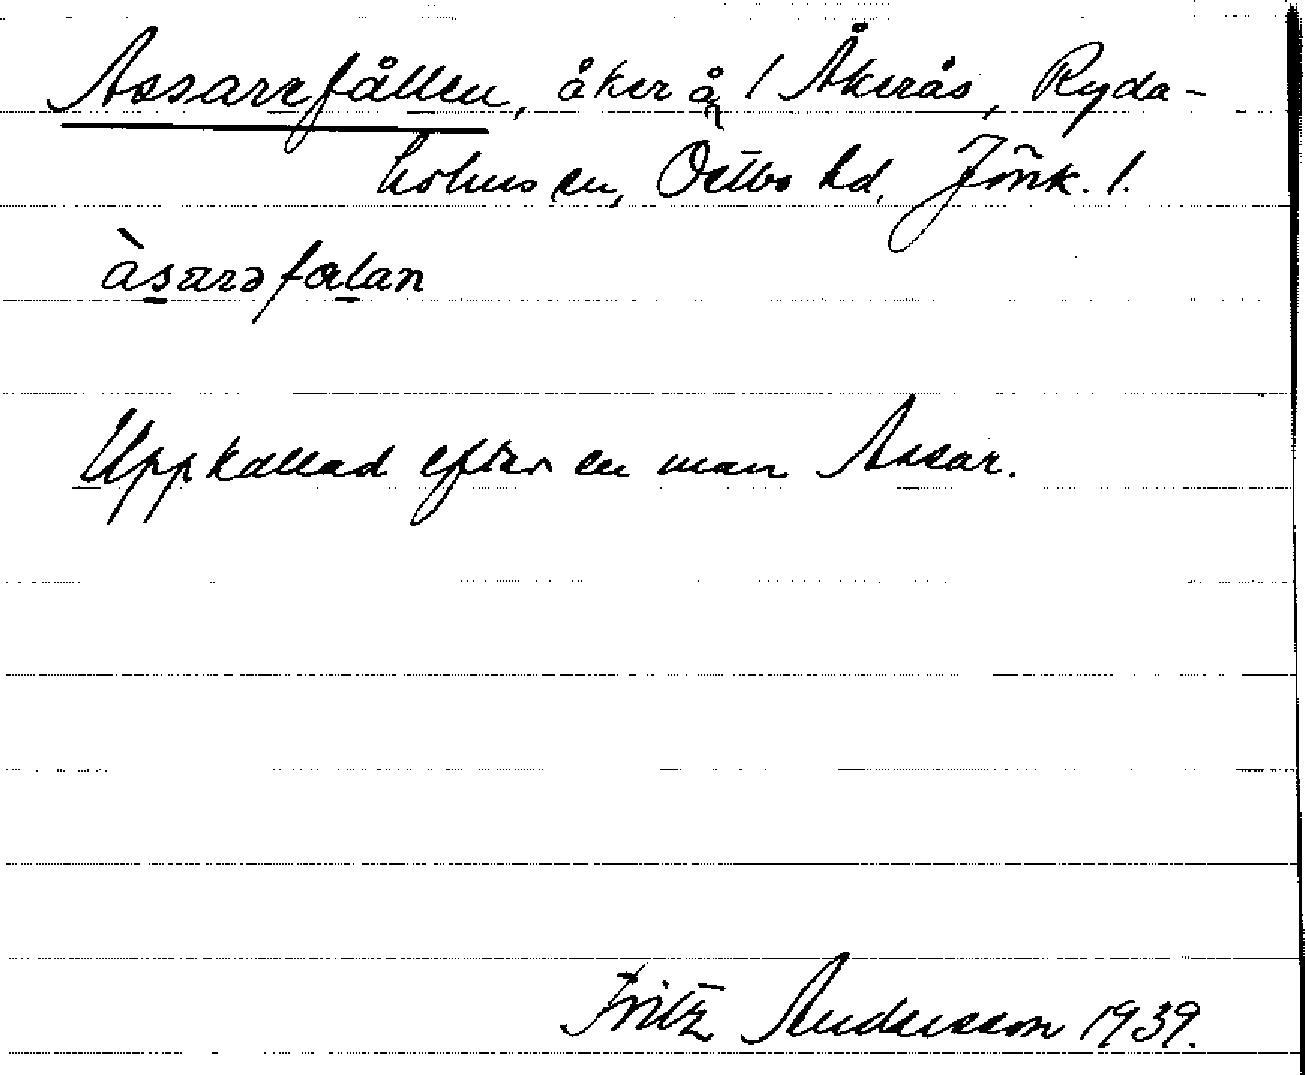 Assarefållen, åker å 1 Åkerås, Ryda-
holms sn, Östbo hd. Jönk. l.
àsarəfɷlan
Uppkallad efter en man Assar.
Fritz Andersson 1939.